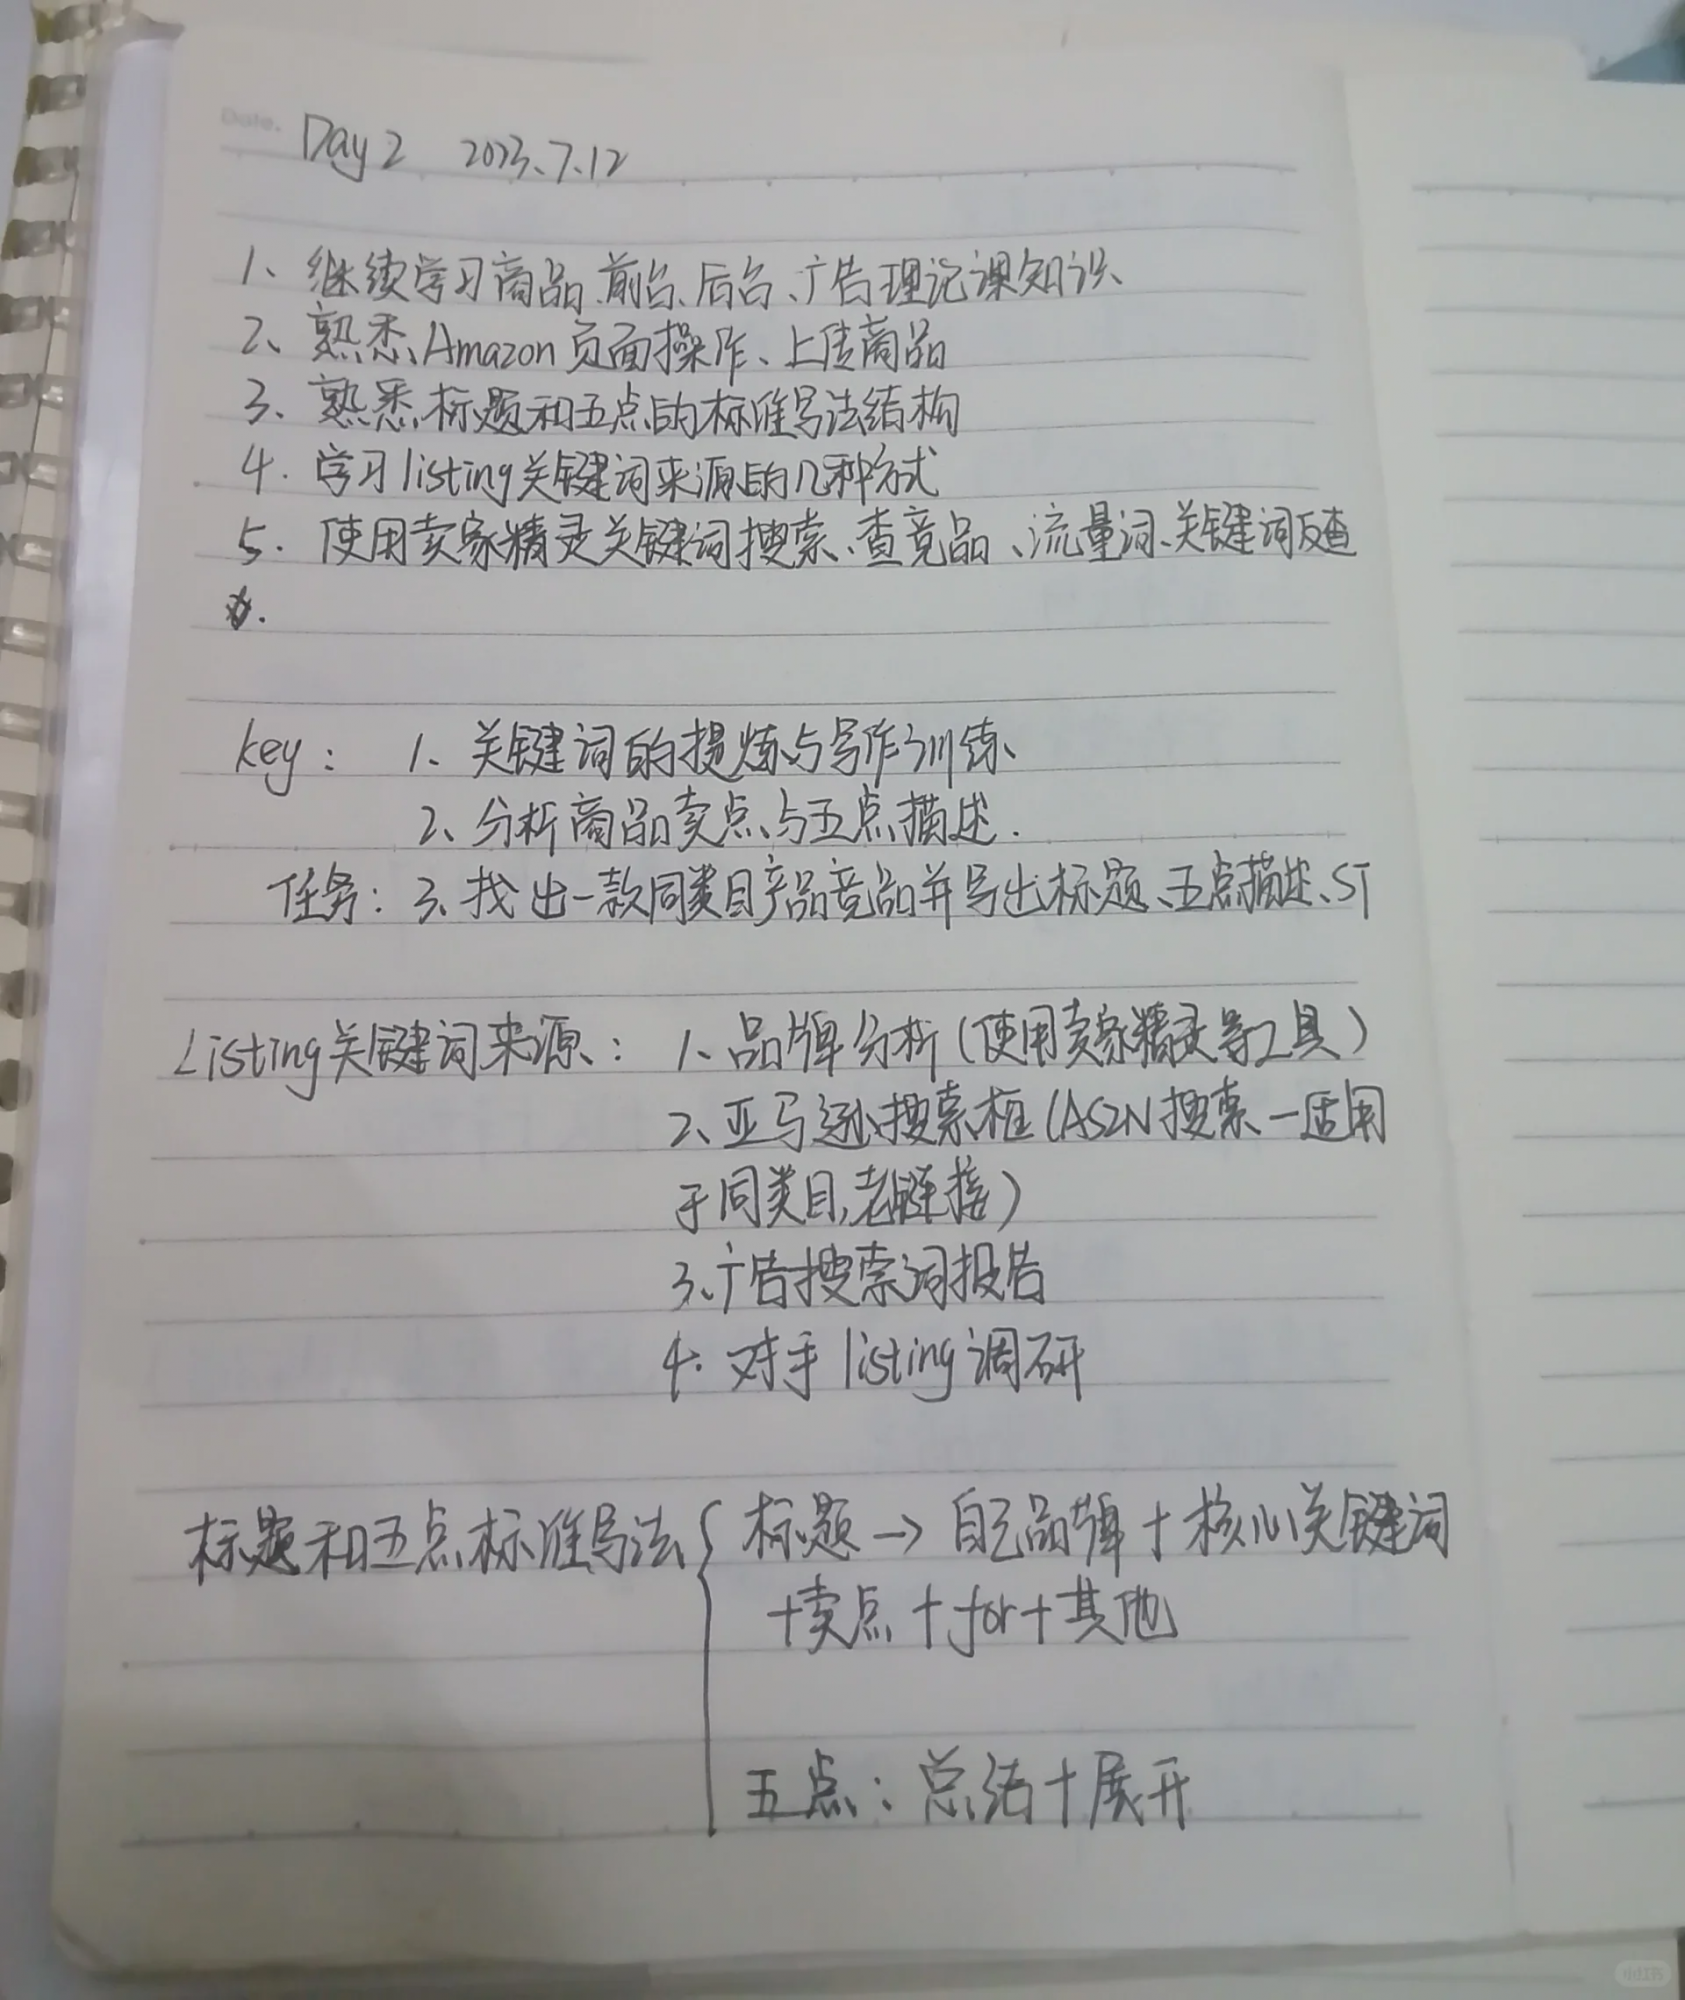 Date. Day 2 2023.7.12
1、继续学习商品、前台、后台、广告理论课知识、
2、熟悉Amazon页面操作、上传商品
3、熟悉标题和五点的标准写法结构
4. 学习listing关键词来源的几种方式
5. 使用卖家精灵关键词搜索、查竞品、流量词、关键词反查
key: 1、关键词的提炼与写作训练、
2、分析商品卖点与五点描述.
任务: 3、找出一款同类目产品竞品并写出标题、五点描述、ST
Listing关键词来源: 1、品牌分析(使用卖家精灵等工具)
2、亚马逊搜索框(ASIN搜索—适用
于同类目,老链接)
3、广告搜索词报告
4. 对手listing调研
标题和五点标准写法{ 标题→自己品牌+核心关键词
+卖点+for+其他
五点: 总结+展开